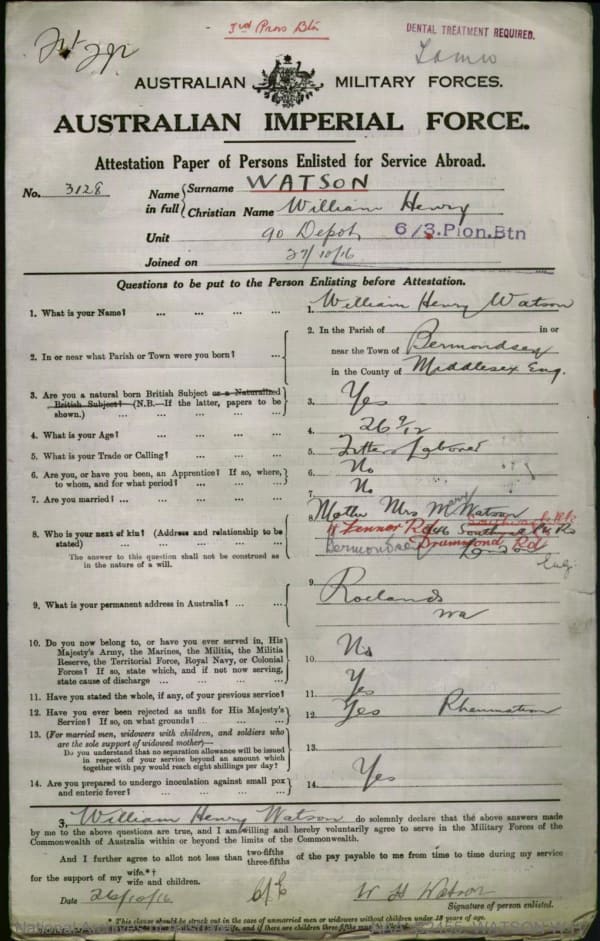 3rd Pnrs Btn
DENTAL TREATMENT REQUIRED.
AUSTRALIAN MILITARY FORCES.
AUSTRALIAN IMPERIAL FORCE.
Attestation Paper of Persons Enlisted for Service Abroad.
No. 3128
Name in full { Surname WATSON
Christian Name William Henry
Unit 90 Depot, 6/3.Pion.Btn
Joined on 27/10/16
Questions to be put to the Person Enlisting before Attestation.
1. What is your Name? ... ... ... ... 1. William Henry Watson
2. In or near what Parish or Town were you born? ... 2. In the Parish of in or
near the Town of Bermondsey
in the County of Middlesex Eng.
3. Are you a natural born British Subject or a Naturalized
British Subject? (N.B.—If the latter, papers to be
shown.) ... ... ... ... 3. Yes
4. What is your Age? ... ... ... ... 4. 26 9/12
5. What is your Trade or Calling? ... ... ... 5. Fitters Laborer
6. Are you, or have you been, an Apprentice? If so, where,
to whom, and for what period? ... ... ... 6. No
7. Are you married? ... ... ... ... 7. No
8. Who is your next of kin? (Address and relationship to be
stated) ... ... ... ...
The answer to this question shall not be construed as
in the nature of a will.
8. Mother Mrs Mary Watson
Bermondsey Drummond Rd
9. What is your permanent address in Australia? ... ... 9. Roelands
WA
10. Do you now belong to, or have you ever served in, His
Majesty's Army, the Marines, the Militia, the Militia
Reserve, the Territorial Force, Royal Navy, or Colonial
Forces? If so, state which, and if not now serving,
state cause of discharge ... ... ... ... 10. No
11. Have you stated the whole, if any, of your previous service? 11. Yes
12. Have you ever been rejected as unfit for His Majesty's
Service? If so, on what grounds? ... ... ... 12. Yes Rheumatism
13. (For married men, widowers with children, and soldiers who
are the sole support of widowed mother)—
Do you understand that no separation allowance will be issued
in respect of your service beyond an amount which
together with pay would reach eight shillings per day? 13.
14. Are you prepared to undergo inoculation against small pox
and enteric fever? ... ... ... ... 14. Yes
I, William Henry Watson do solemnly declare that the above answers made
by me to the above questions are true, and I am willing and hereby voluntarily agree to serve in the Military Forces of the
Commonwealth of Australia within or beyond the limits of the Commonwealth.
And I further agree to allot not less than two-fifths three-fifths of the pay payable to me from time to time during my service
for the support of my wife.*†
wife and children.
Date 26/10/16 W H Watson
Signature of person enlisted.
* This clause should be struck out in the case of unmarried men or widowers without children under 18 years of age.